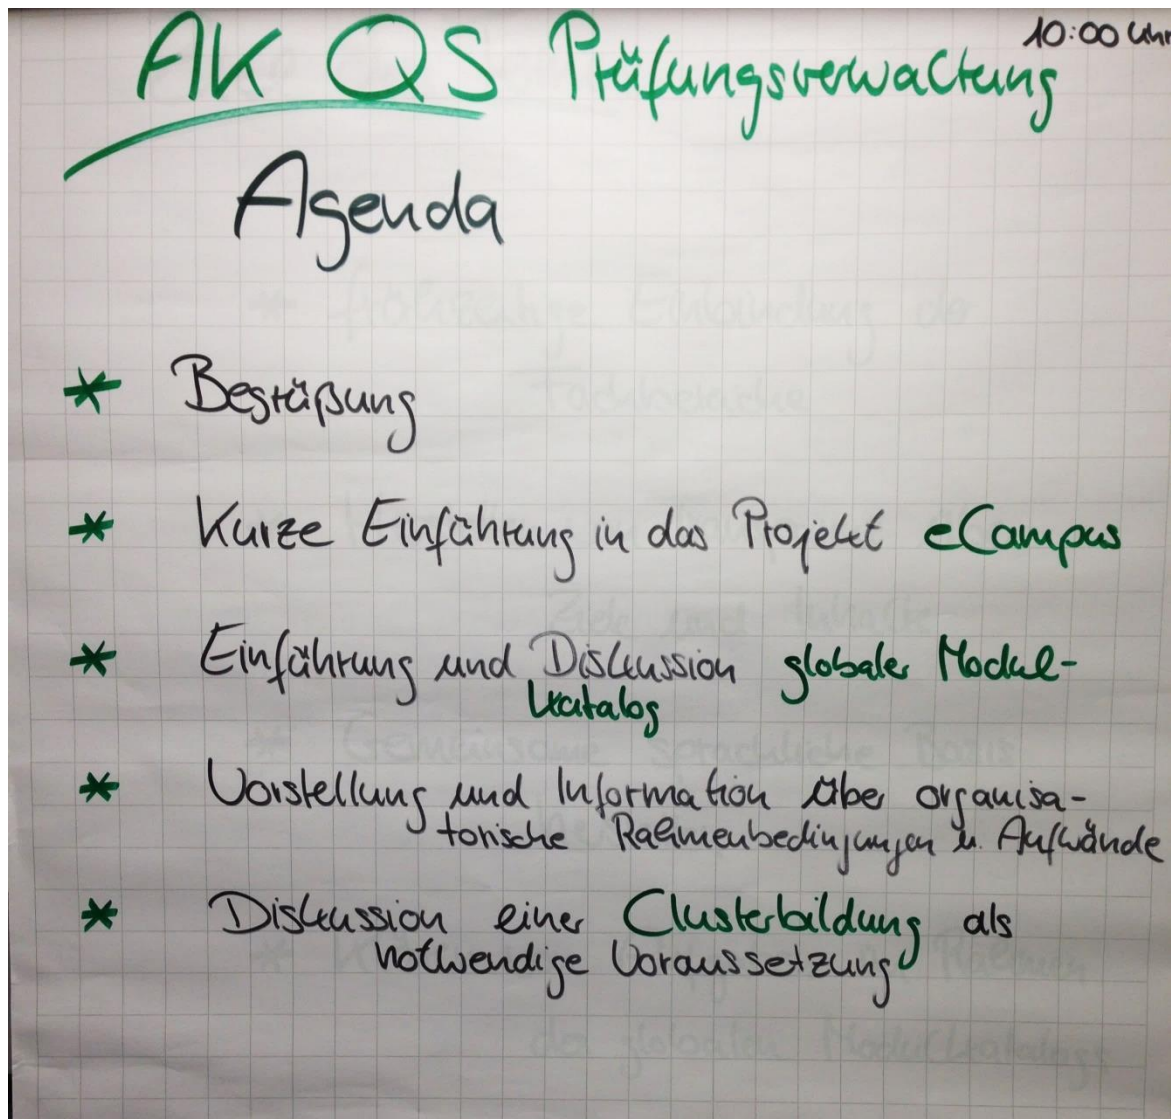 10:00 Uhr
AK QS Prüfungsverwaltung
Agenda
* Begrüßung
* Kurze Einführung in das Projekt eCampus
* Einführung und Diskussion globaler Modul-
katalog
* Vorstellung und Information über organisa-
torische Rahmenbedingungen u. Aufwände
* Diskussion einer Clusterbildung als
notwendige Voraussetzung